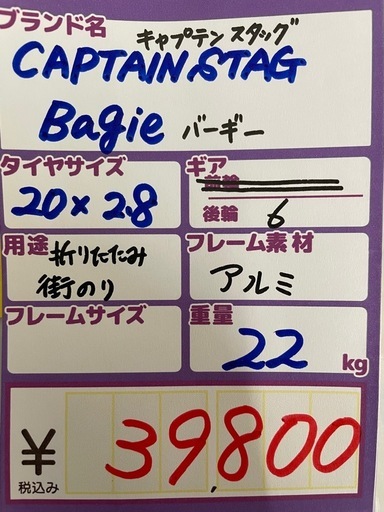 ブランド名
キャプテンスタッグ
CAPTAIN STAG
Bagie バーギー
タイヤサイズ
20×2.8
ギア
後輪 6
用途 折りたたみ
街のり
フレーム素材
アルミ
フレームサイズ
重量
22 kg
¥ 39,800
税込み